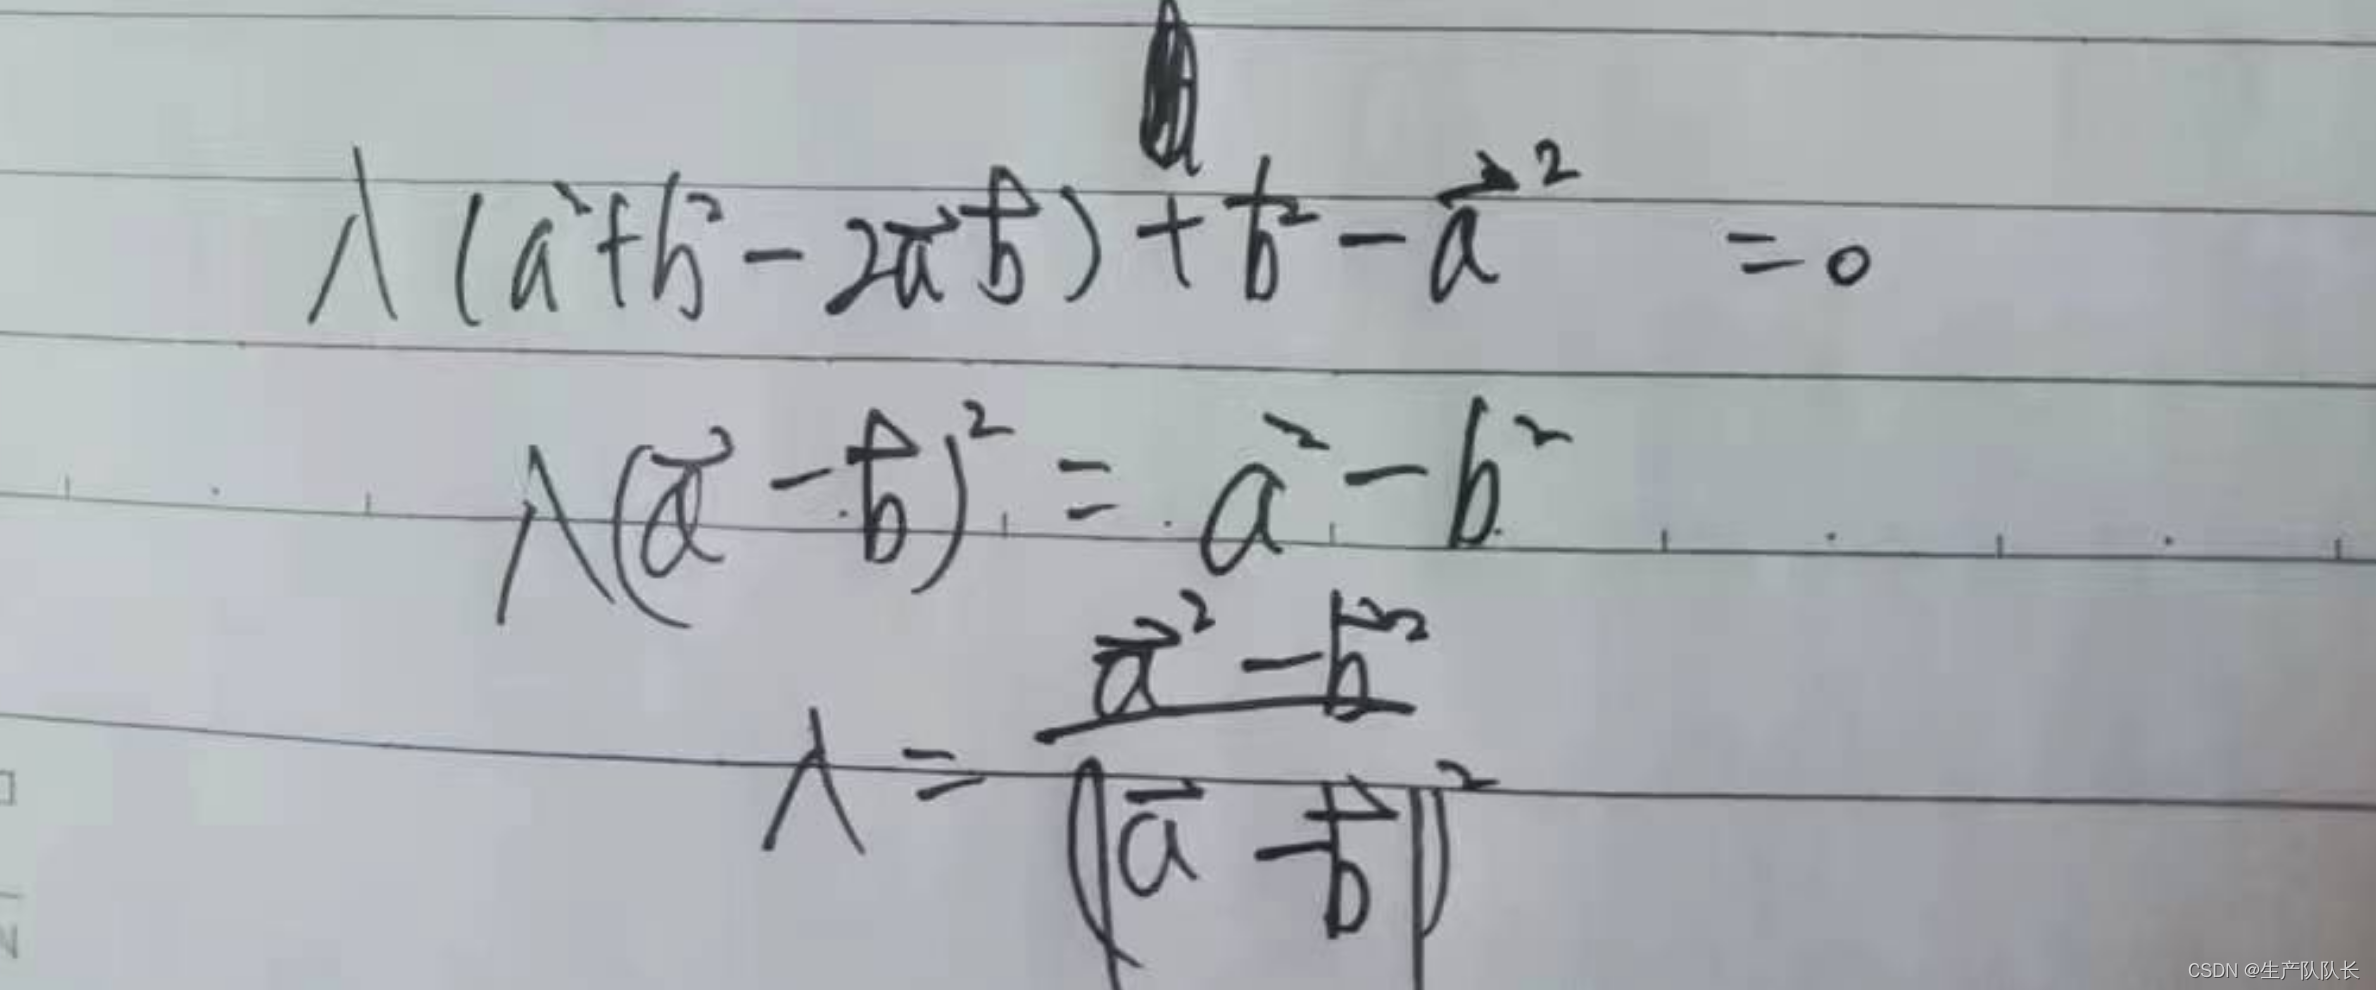 λ(a²+b²-2a⃗b⃗)+b⃗²-a⃗²=0
λ(a⃗-b⃗)²=a²-b²
λ=(a⃗²-b⃗²)/(|a⃗-b⃗|)²
CSDN @生产队队长